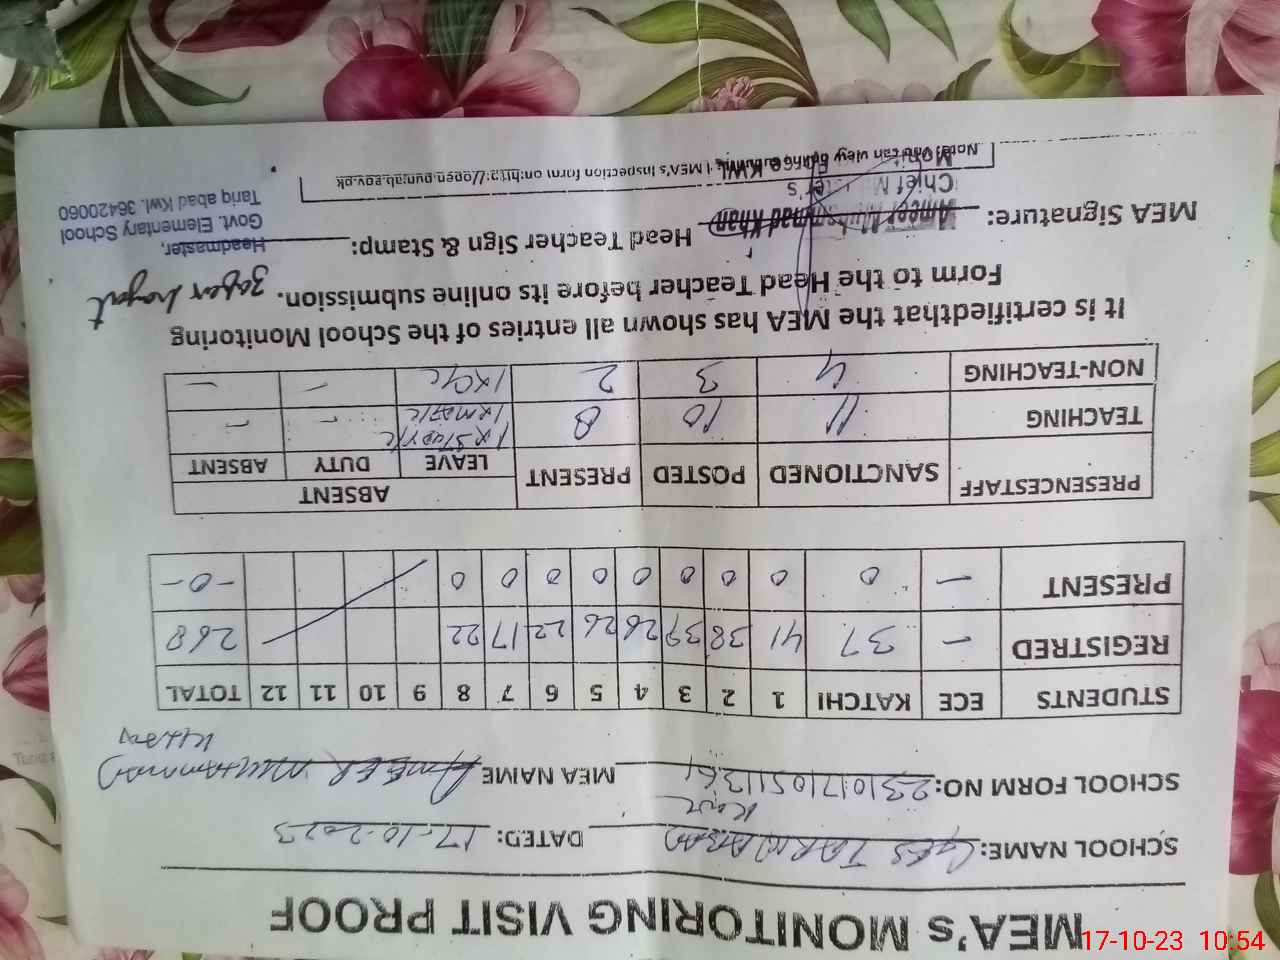 MEA's MONITORING VISIT PROOF
SCHOOL NAME: GES TARIQ ABAD KWL DATED: 17-10-2023
SCHOOL FORM NO: MEA NAME AMEER MUHAMMAD KHAN
STUDENTS ECE KATCHI 1 2 3 4 5 6 7 8 9 10 11 12 TOTAL
REGISTRED — 37 41 38 39 26 26 22 17 22 268
PRESENT — 0 0 0 0 0 0 0 0 0 -0-
PRESENCESTAFF SANCTIONED POSTED PRESENT ABSENT
LEAVE DUTY ABSENT
TEACHING 11 10 8 1xSTUDY/L 1xMAT/L - -
NON-TEACHING 4 3 2 1xC/L - -
It is certifiedthat the MEA has shown all entries of the School Monitoring
Form to the Head Teacher before its online submission.
MEA Signature: Ameer Muhammad Khan Head Teacher Sign & Stamp: Headmaster,
Chief Minister's Govt. Elementary School
Tariq abad Kwl. 36420060
Note: You can view MEA's Inspection form on:http://open.punjab.gov.pk
17-10-23 10:54